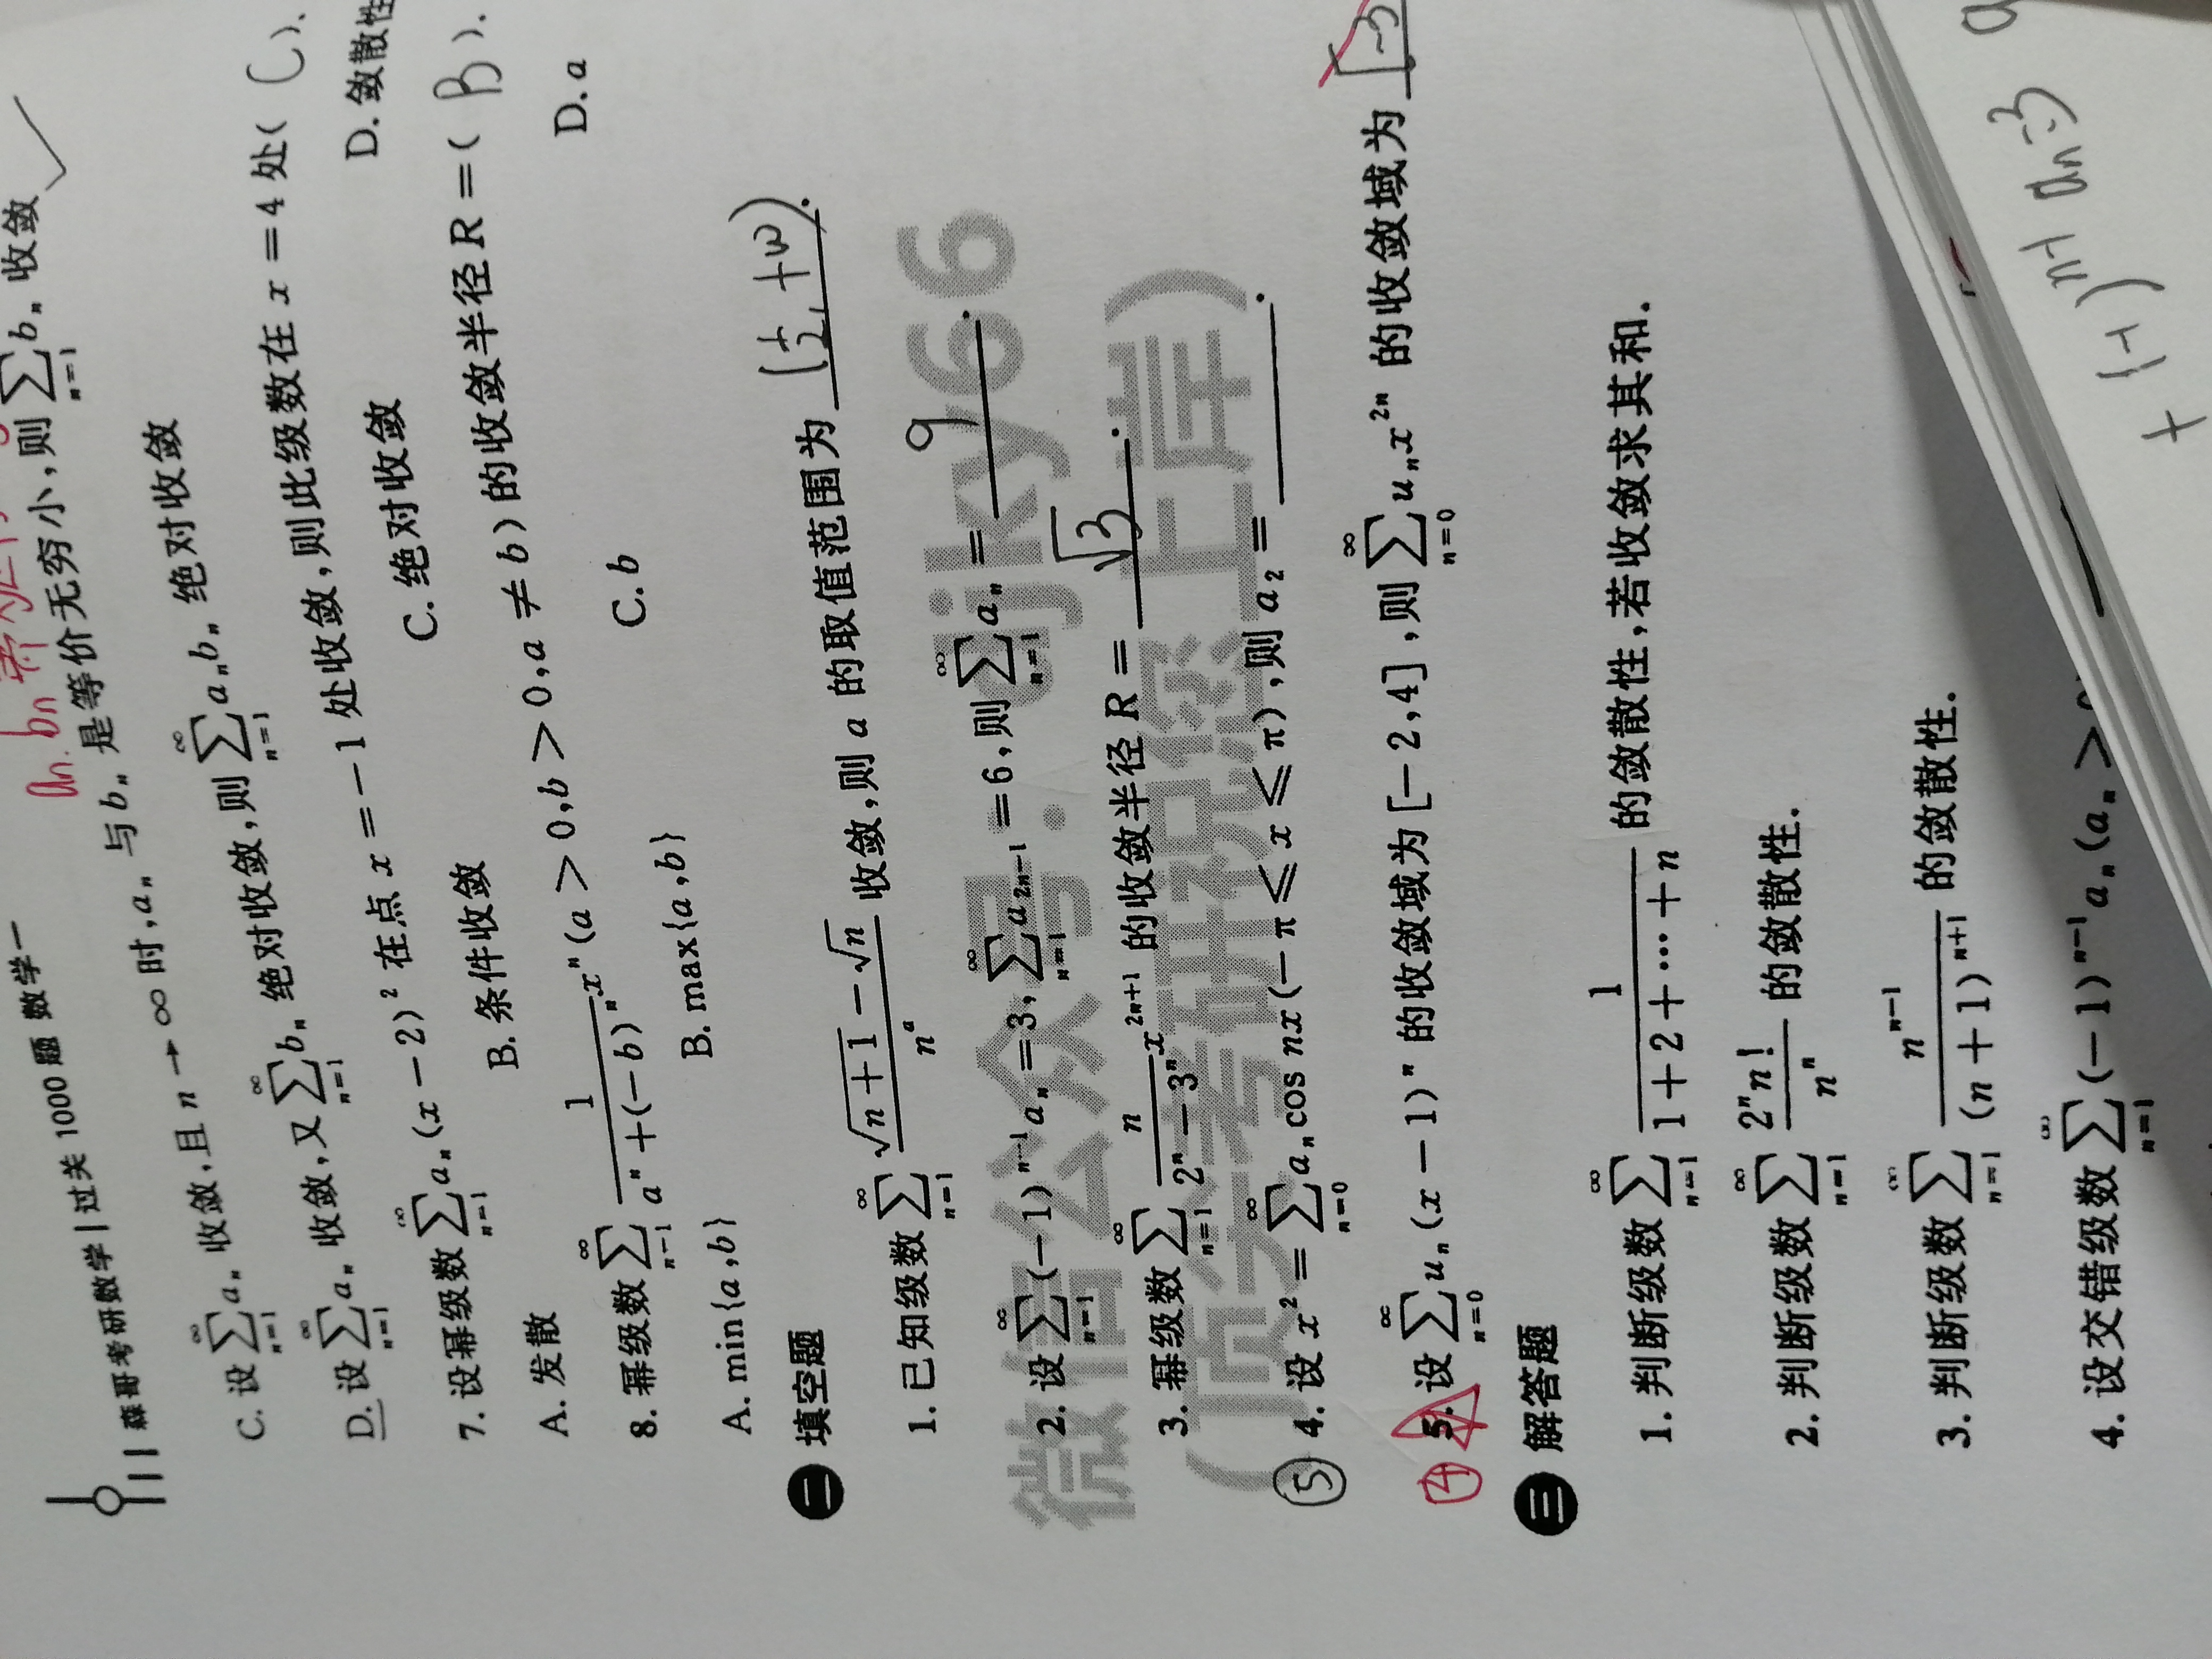 森哥考研数学|过关1000题 数学一
a_n. b_n
C. 设 $\sum_{n=1}^{\infty} a_n$ 收敛,且 n→∞时,a_n 与 b_n 是等价无穷小,则 $\sum_{n=1}^{\infty} b_n$ 收敛
D. 设 $\sum_{n=1}^{\infty} a_n$ 收敛,又 $\sum_{n=1}^{\infty} b_n$ 绝对收敛,则 $\sum_{n=1}^{\infty} a_n b_n$ 绝对收敛
7. 设幂级数 $\sum_{n=1}^{\infty} a_n (x-2)^2$ 在点 x=-1 处收敛,则此级数在 x=4 处( C ).
A. 发散 B. 条件收敛 C. 绝对收敛 D. 敛散性
8. 幂级数 $\sum_{n=1}^{\infty} \frac{1}{a^n+(-b)^n} x^n$ (a>0,b>0,a≠b) 的收敛半径 R=( B ).
A. min{a,b} B. max{a,b} C. b D. a
二 填空题
1. 已知级数 $\sum_{n=1}^{\infty} \frac{\sqrt{n+1}-\sqrt{n}}{n^a}$ 收敛,则 a 的取值范围为 (½, +∞).
2. 设 $\sum_{n=1}^{\infty} (-1)^{n-1} a_n=3, \sum_{n=1}^{\infty} a_{2n-1}=6$,则 $\sum_{n=1}^{\infty} a_n=$ 9.
3. 幂级数 $\sum_{n=1}^{\infty} \frac{n}{2^n-3^n} x^{2n+1}$ 的收敛半径 R= √3.
⑤ 4. 设 $x^2=\sum_{n=0}^{\infty} a_n \cos nx (-π≤x≤π)$,则 $a_2=$ .
4 5. 设 $\sum_{n=0}^{\infty} u_n (x-1)^n$ 的收敛域为[-2,4],则 $\sum_{n=0}^{\infty} u_n x^{2n}$ 的收敛域为
三 解答题
1. 判断级数 $\sum_{n=1}^{\infty} \frac{1}{1+2+\cdots+n}$ 的敛散性,若收敛求其和.
2. 判断级数 $\sum_{n=1}^{\infty} \frac{2^n n!}{n^n}$ 的敛散性.
3. 判断级数 $\sum_{n=1}^{\infty} \frac{n^{n-1}}{(n+1)^{n+1}}$ 的敛散性.
4. 设交错级数 $\sum_{n=1}^{\infty} (-1)^{n-1} a_n (a_n>$
+ (-1)^{n-1} a_n=3
微信公众号: djky66
(顶尖考研祝您上岸)